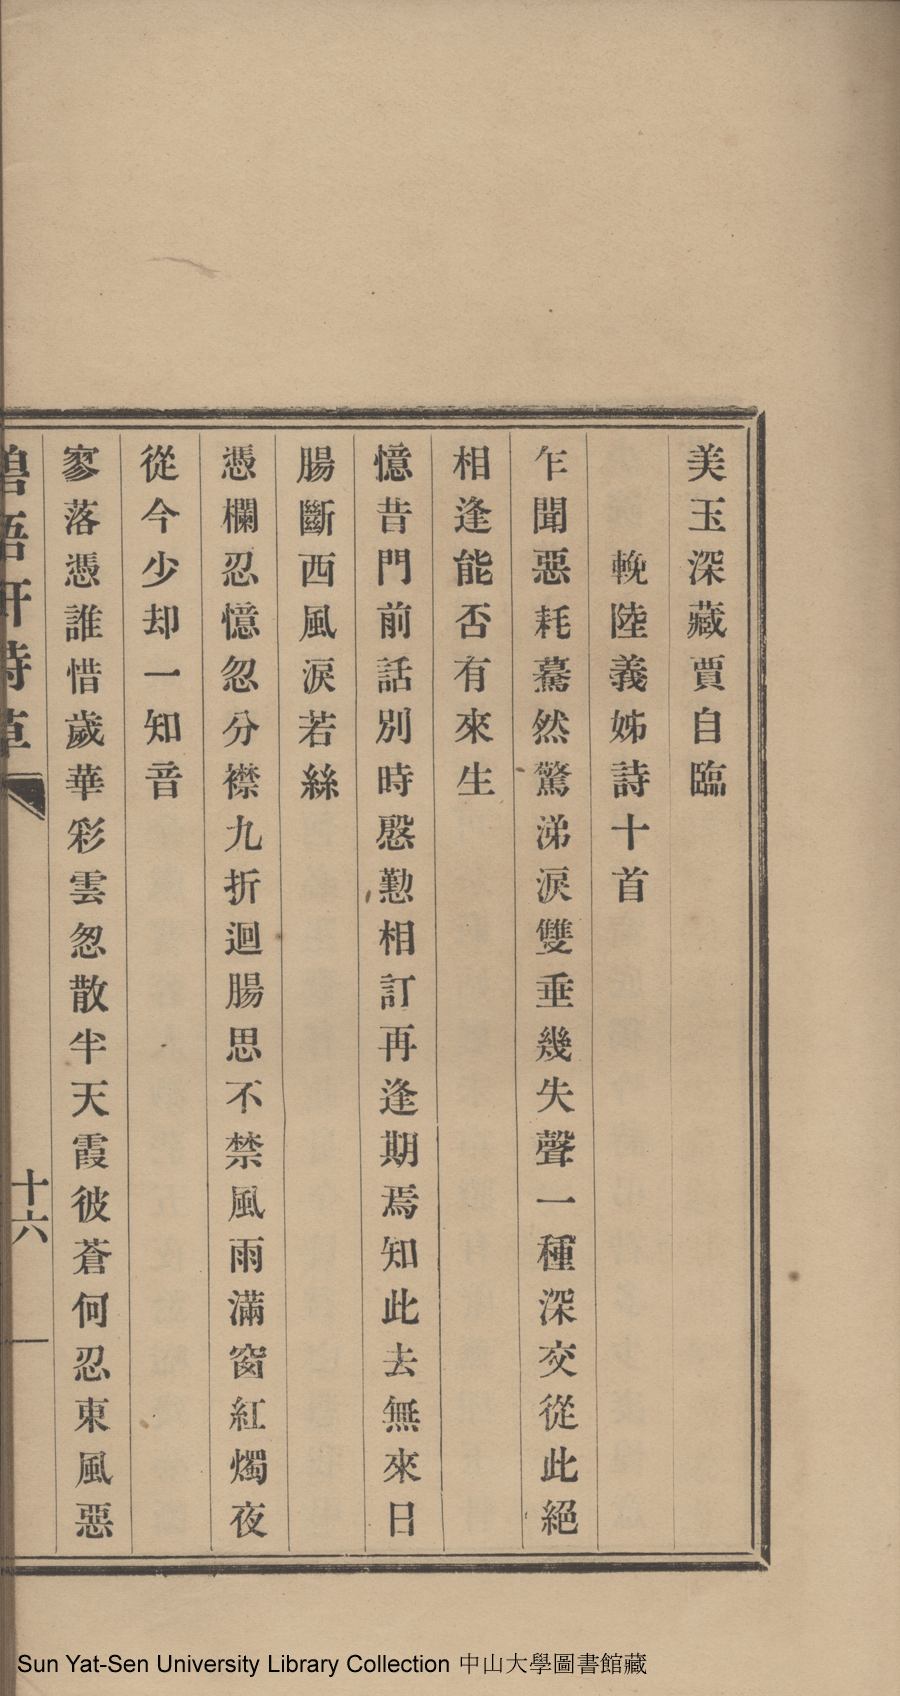 美玉深藏賈自臨
輓陸義姊詩十首
乍聞惡耗驀然驚涕淚雙垂幾失聲一種深交從此絕
相逢能否有來生
憶昔門前話別時慇懃相訂再逢期焉知此去無來日
腸斷西風淚若絲
憑欄忍憶忽分襟九折迴腸思不禁風雨滿窗紅燭夜
從今少却一知音
寥落憑誰惜歲華彩雲忽散半天霞彼蒼何忍東風惡
碧梧軒詩草
十六
Sun Yat-Sen University Library Collection 中山大學圖書館藏